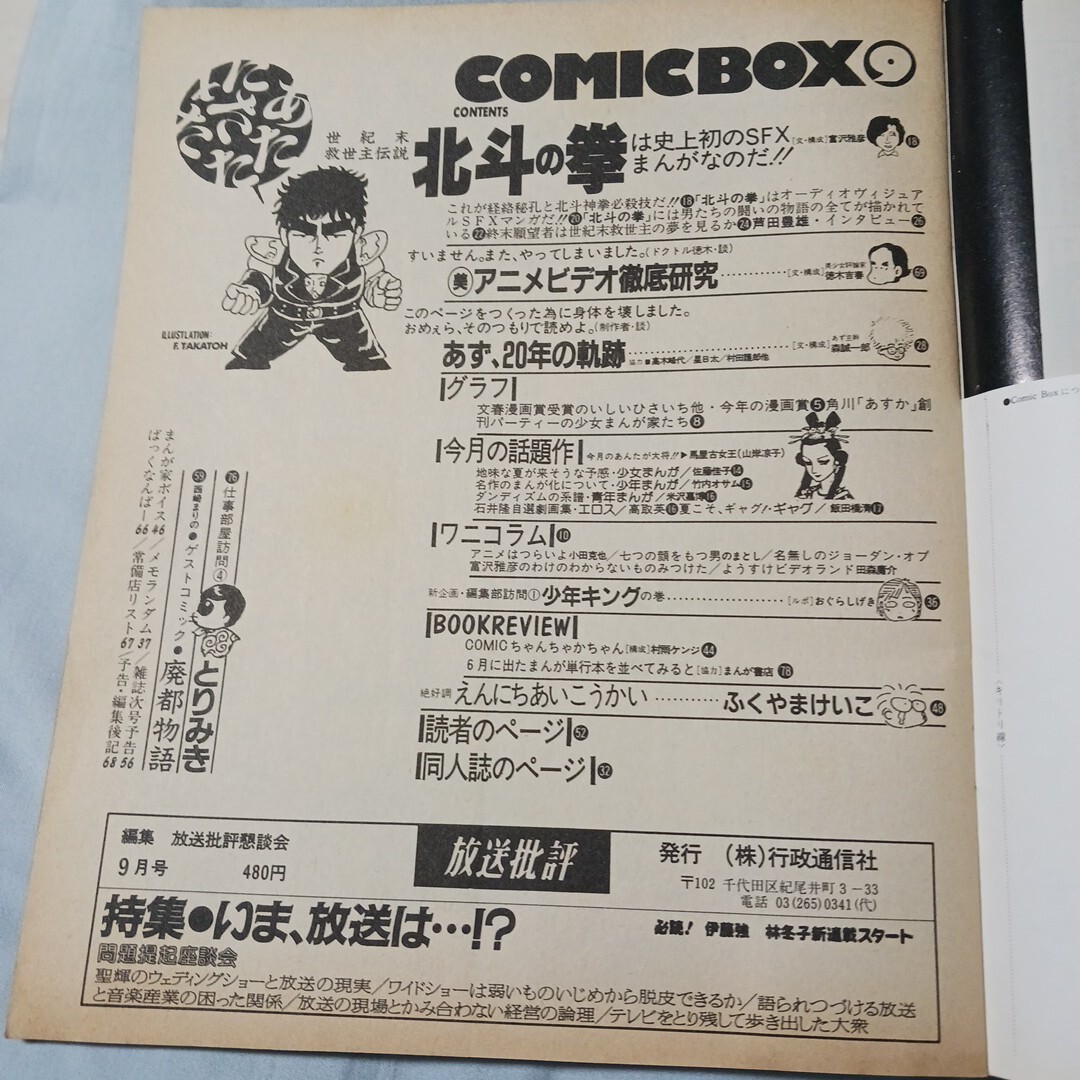 COMIC BOX 9
CONTENTS
あたたたた
世紀末
救世主伝説
北斗の拳は史上初のSFX
まんがなのだ!!
[文・構成]富沢雅彦 18
これが経絡秘孔と北斗神拳必殺技だ!!18「北斗の拳」はオーディオヴィジュア
ルSFXマンガだ!!20「北斗の拳」には男たちの闘いの物語の全てが描かれて
いる22終末願望者は世紀末救世主の夢を見るか24芦田豊雄・インタビュー26
ILLUSTLATION:
F. TAKATOH
すいません。また、やってしまいました。(ドクトル徳木・談)
美 アニメビデオ徹底研究…………[文・構成]美少女評論家 徳木吉春 69
このページをつくった為に身体を壊しました。
おめぇら、そのつもりで読めよ。(制作者・談)
あず、20年の軌跡…………[文・構成]あず主幹 森誠一郎 28
協力■高木峰代/星日太/村田護郎他
グラフ
文春漫画賞受賞のいしいひさいち他・今年の漫画賞5角川「あすか」創
刊パーティーの少女まんが家たち8
今月の話題作 今月のあんたが大将!!▶馬屋古女王(山岸凉子)
地味な夏が来そうな予感・少女まんが/佐藤佳子14
名作のまんが化について・少年まんが/竹内オサム15
ダンディズムの系譜・青年まんが/米沢嘉博16
石井隆自選劇画集・エロス/高取英16夏こそ、ギャグ!・ギャグ/飯田橋濟17
ワニコラム10
アニメはつらいよ小田克也/七つの顔をもつ男のまとし/名無しのジョーダン・オブ
富沢雅彦のわけのわからないものみつけた/ようすけビデオランド田森庸介
新企画・編集部訪問① 少年キングの巻…………[ルポ]おぐらしげき 36
BOOKREVIEW
COMICちゃんちゃかちゃん[構成]村雨ケンジ44
6月に出たまんが単行本を並べてみると[協力]まんが書店78
絶好調 えんにちあいこうかい…………ふくやまけいこ 48
読者のページ52
同人誌のページ32
76仕事部屋訪問④ とりみき
59西崎まりの●ゲストコミック・廃都物語
まんが家ボイス46/メモランダム37/雑誌次号予告56
ばっくなんばー66/常備店リスト67/予告・編集後記68
編集 放送批評懇談会
9月号 480円
放送批評
発行 (株)行政通信社
〒102 千代田区紀尾井町3−33
電話 03(265)0341(代)
特集●いま、放送は…!?
必読! 伊藤強 林冬子新連載スタート
問題提起座談会
聖輝のウェディングショーと放送の現実/ワイドショーは弱いものいじめから脱皮できるか/語られつづける放送
と音楽産業の困った関係/放送の現場とかみ合わない経営の論理/テレビをとり残して歩き出した大衆
●Comic Boxにつ
〈キリトリ線〉